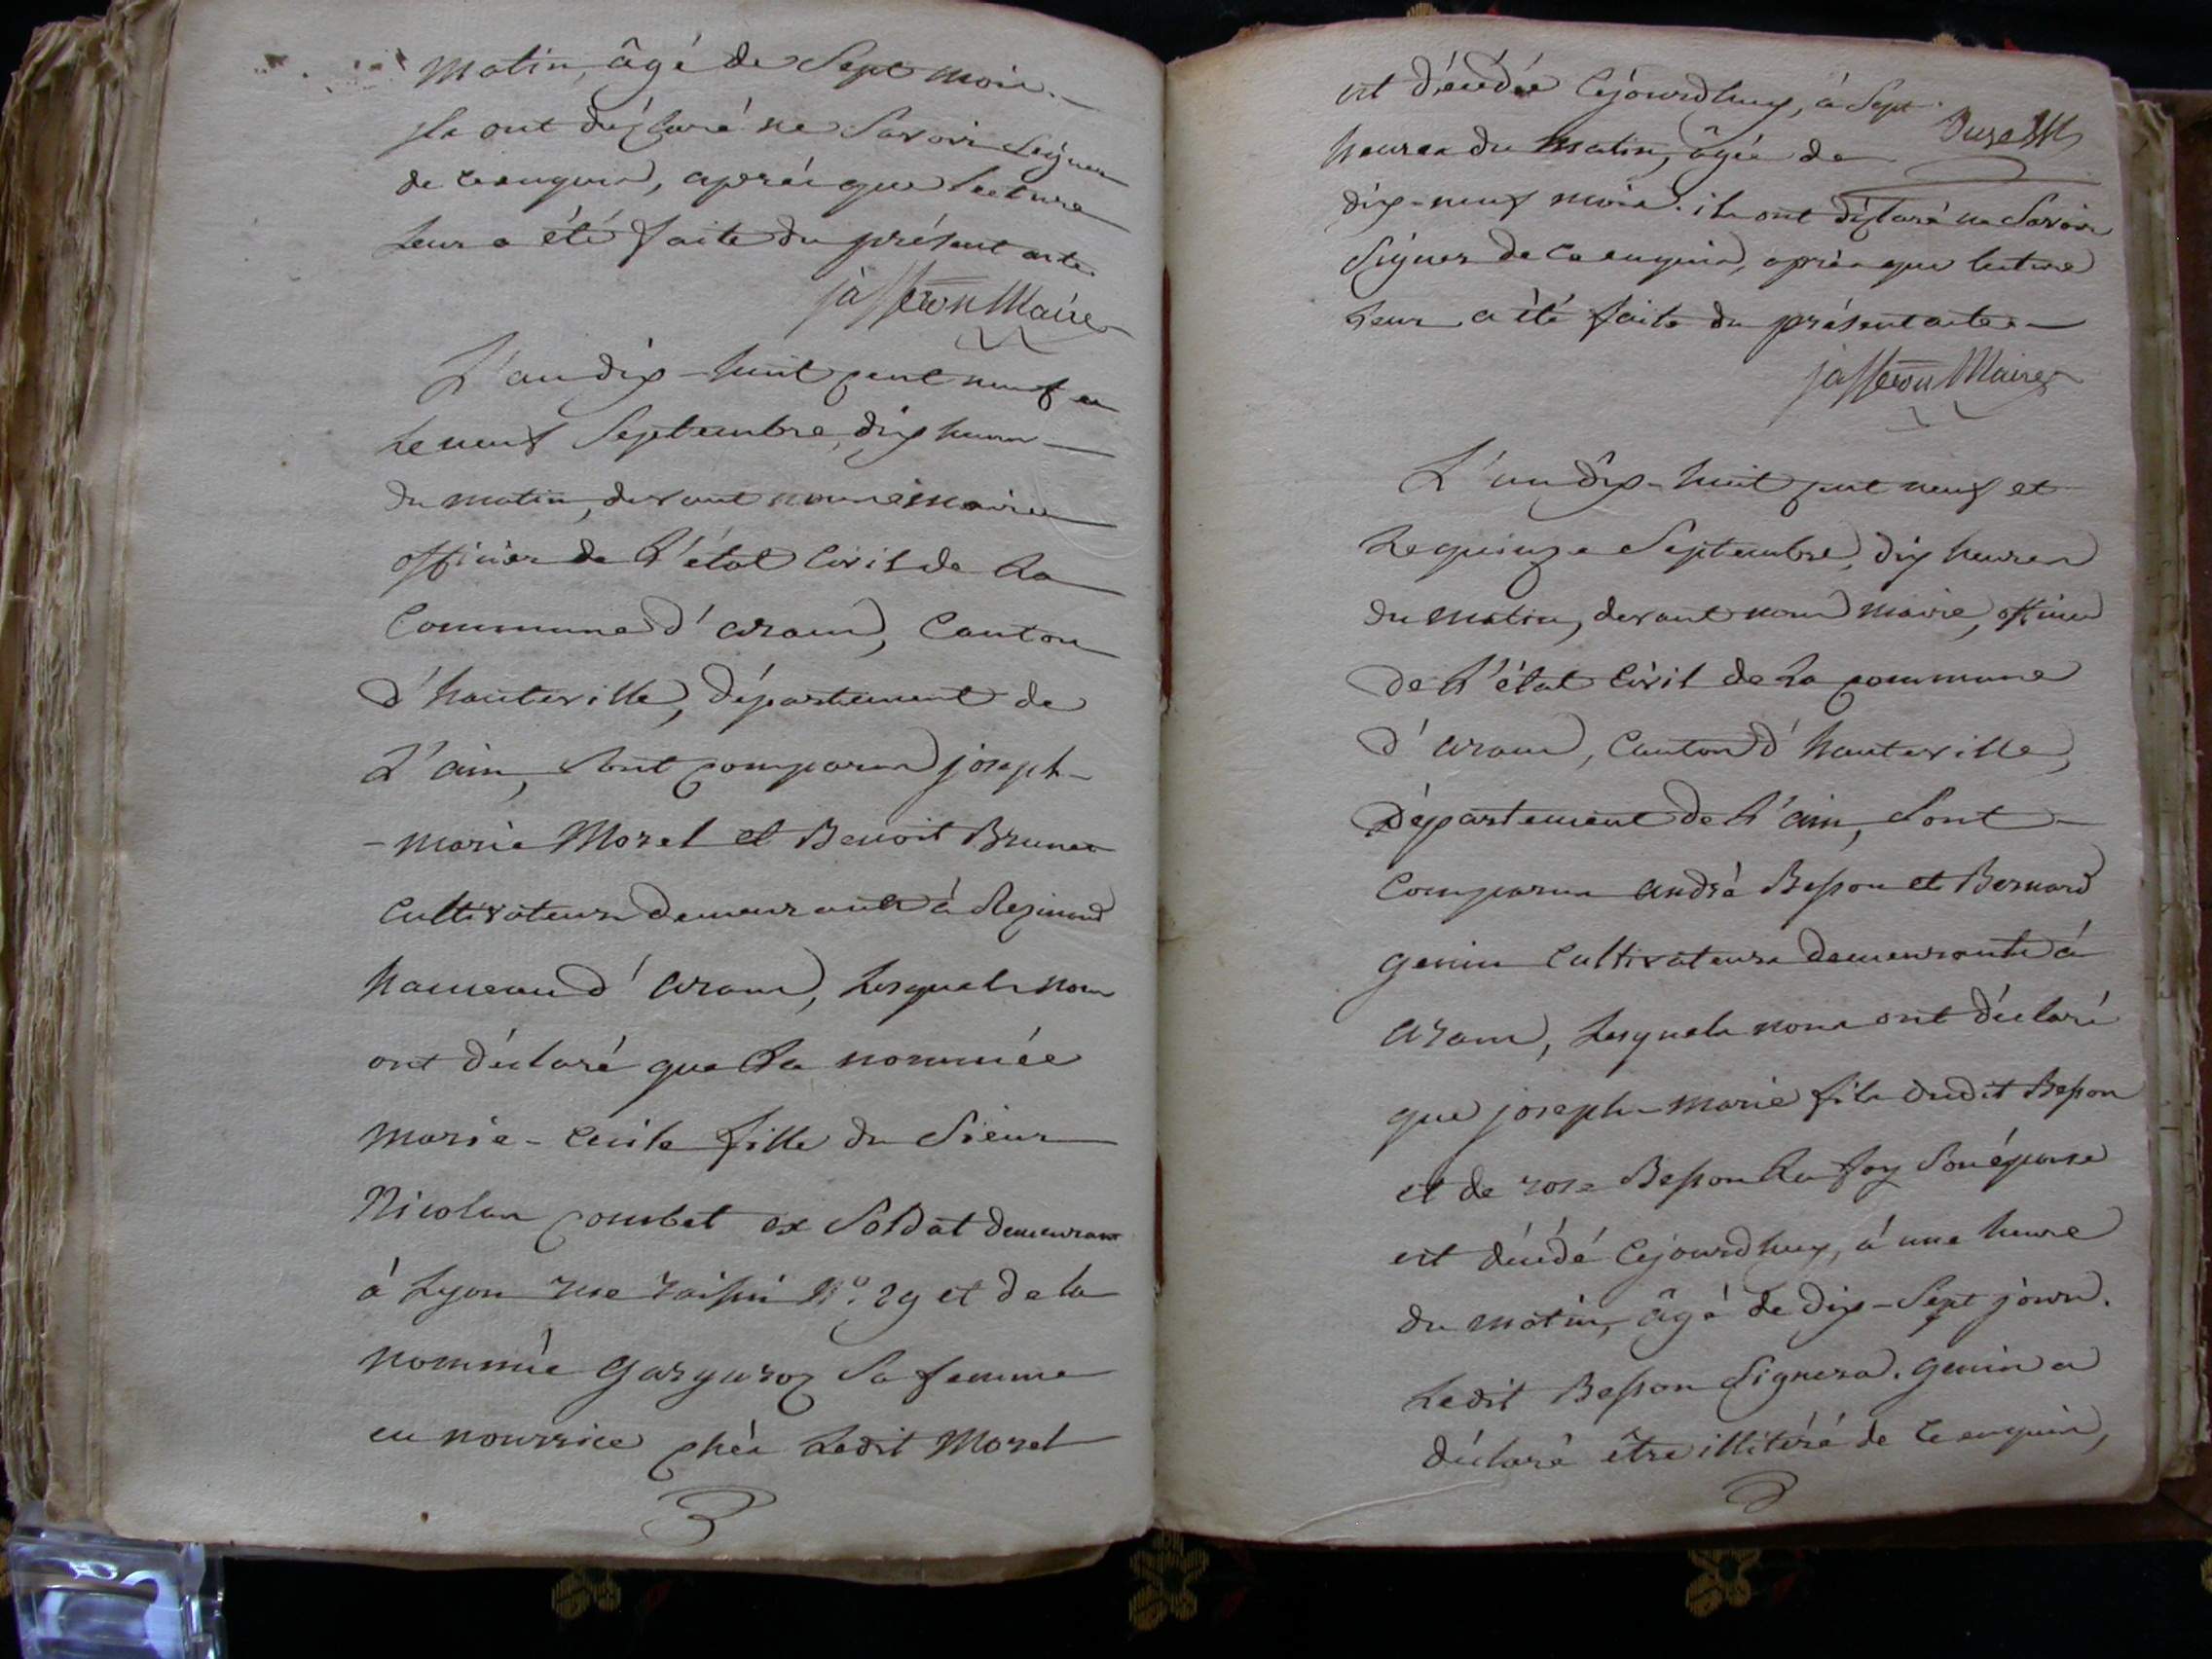 matin, âgé de Sept mois. —
ils ont déclaré ne Savoir Signer
de ce enquis, après que lecture
leur a été faite du présent acte.
jasseron Maire
L'an dix-huit cent neuf et
le neuf Septembre, dix heures
du matin, devant nous maire
officier de L'état Civil de La
Commune d'aranc, Canton
d'hauteville, département de
L'ain, Sont comparus joseph-
-marie Morel et Benoit Brunet
Cultivateurs demeurants à Rezinand
hameau d'aranc, Lesquels nous
ont déclaré que La nommée
marie-Cecile fille du Sieur
Nicolas combet ex Soldat demeurant
à Lyon rue raisin N°. 29 et de la
nommée Sa femme
en nourrice chés Ledit Morel
est décédée Cejourdhuy, à Sept
heures du matin, âgée de
dix-neuf mois. ils ont déclaré ne Savoir
Signer de ce enquis, après que lecture
Leur a été faite du présent acte. —
jasseron Maire
L'an dix-huit cent neuf et
Le quinze Septembre, dix heures
du matin, devant nous maire, officier
de L'état Civil de La commune
d'aranc, Canton d'hauteville,
département de L'ain, Sont
Comparus andré Besson et Bernard
genin Cultivateurs demeurants à
aranc, Lesquels nous ont déclaré
que joseph-marie fils dudit Besson
et de rose Besson La Son épouse
est décédé Cejourdhuy, à une heure
du matin, âgé de dix-Sept jours.
Ledit Besson Signera. genin a
déclaré être illitéré de ce enquis,